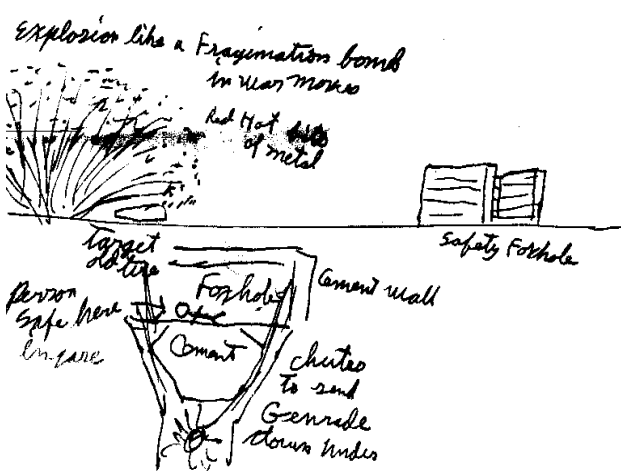 Explosion like a Fragimation bomb
in war movies
Red Hot
of metal
Safety Foxhole
Target
old tire
Foxhole
Cement wall
Person
Safe here
Cement
chutes
to send
Genrade
down under